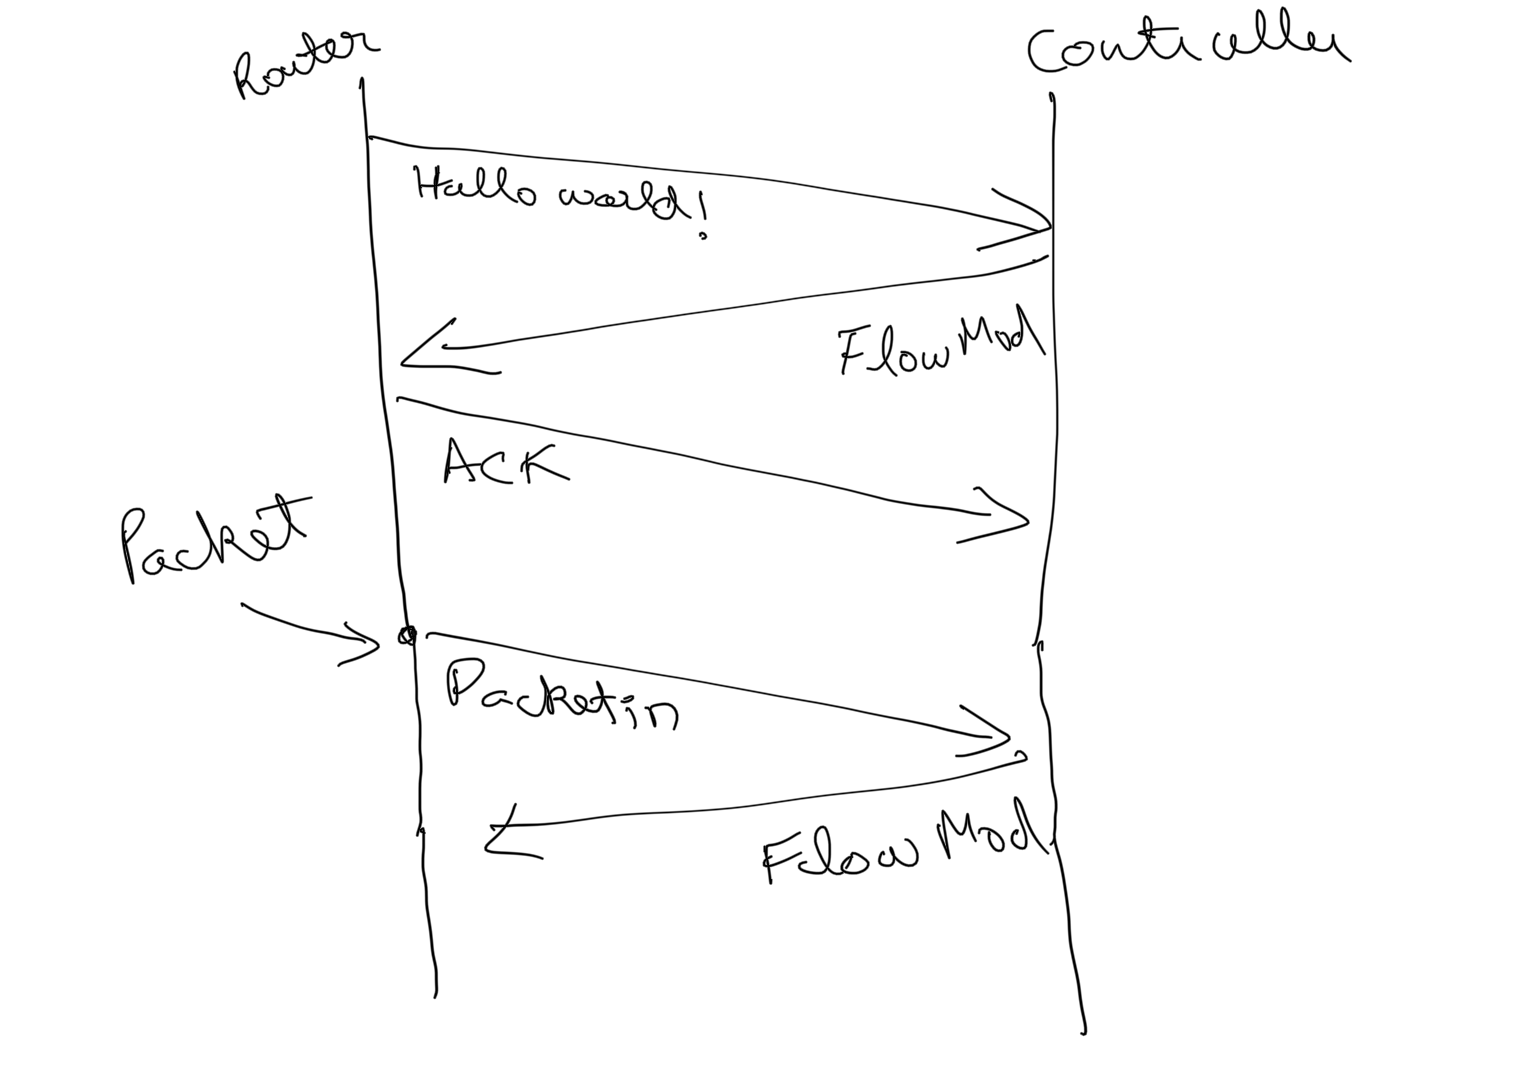 Router
Controller
Hallo world!
FlowMod
ACK
Packet
Packetin
FlowMod